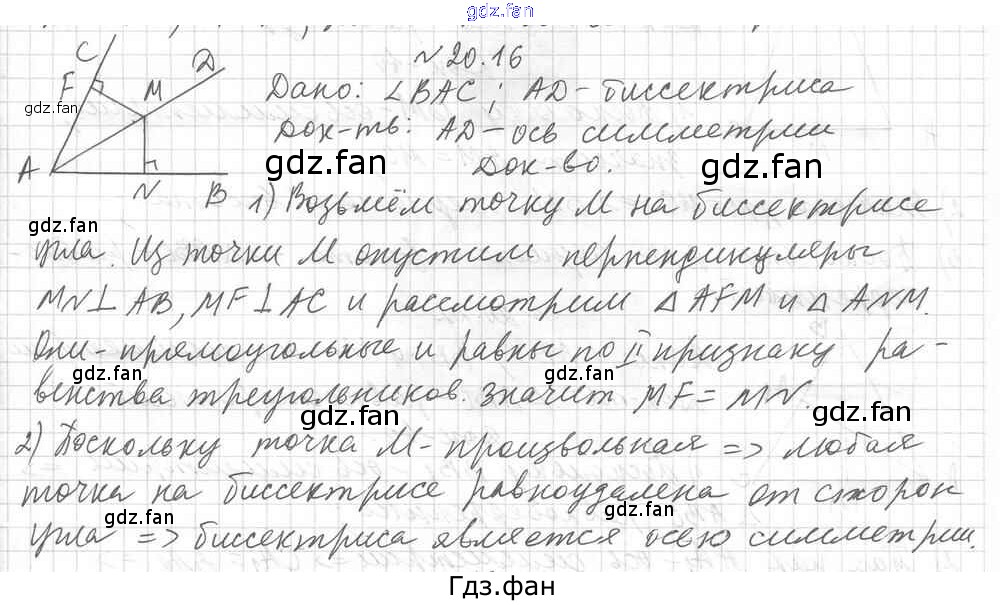 gdz.fan
№ 20.16
C
F
M
D
A
N
B
gdz.fan
Дано: ∠BAC; AD-биссектриса
Док-ть: AD-ось симметрии
gdz.fan
gdz.fan
Док-во.
1) Возьмём точку M на биссектрисе
gdz.fan
gdz.fan
угла. Из точки M опустим перпендикуляры
MN⊥AB, MF⊥AC и рассмотрим △AFM и △ANM.
Они-прямоугольные и равны по II признаку ра-
gdz.fan
gdz.fan
венства треугольников. Значит MF=MN.
gdz.fan
gdz.fan
2) Поскольку точка M-произвольная => любая
точка на биссектрисе равноудалена от сторон
gdz.fan
gdz.fan
угла => биссектриса является осью симметрии.
Гдз.фан